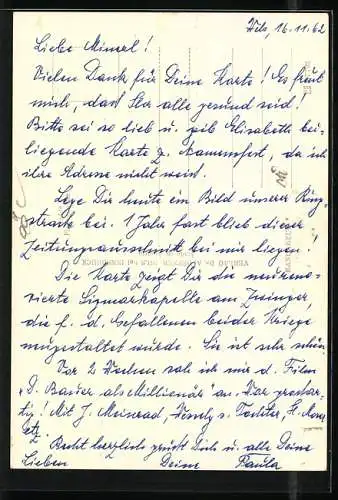 Wels, 16.11.62
Liebe Mimerl!
Vielen Dank für Deine Karte! Es freut
mich, dass Ihr alle gesund seid!
Bitte sei so lieb u. gib Elisabeth bei-
liegende Karte z. Namensfest, da ich
ihre Adresse nicht weiss.
Lege Dir heute ein Bild unserer Ring-
strasse bei. 1 Jahr fast blieb dieser
Zeitungsausschnitt bei mir liegen!
Die Karte zeigt Dir die neureno-
vierte Sigmarkapelle am Zwinger,
die f. d. Gefallenen beider Kriege
neugestaltet wurde. Sie ist sehr schön.
Vor 2 Wochen sah ich mir d. Film
"D. Bauer als Millionär" an. War grossar-
tig! Mit J. Meinrad, Wessely u. Tochter, H. Moser
etz. Recht herzlich grüsst Dich u. alle Deine
Lieben Deine Paula